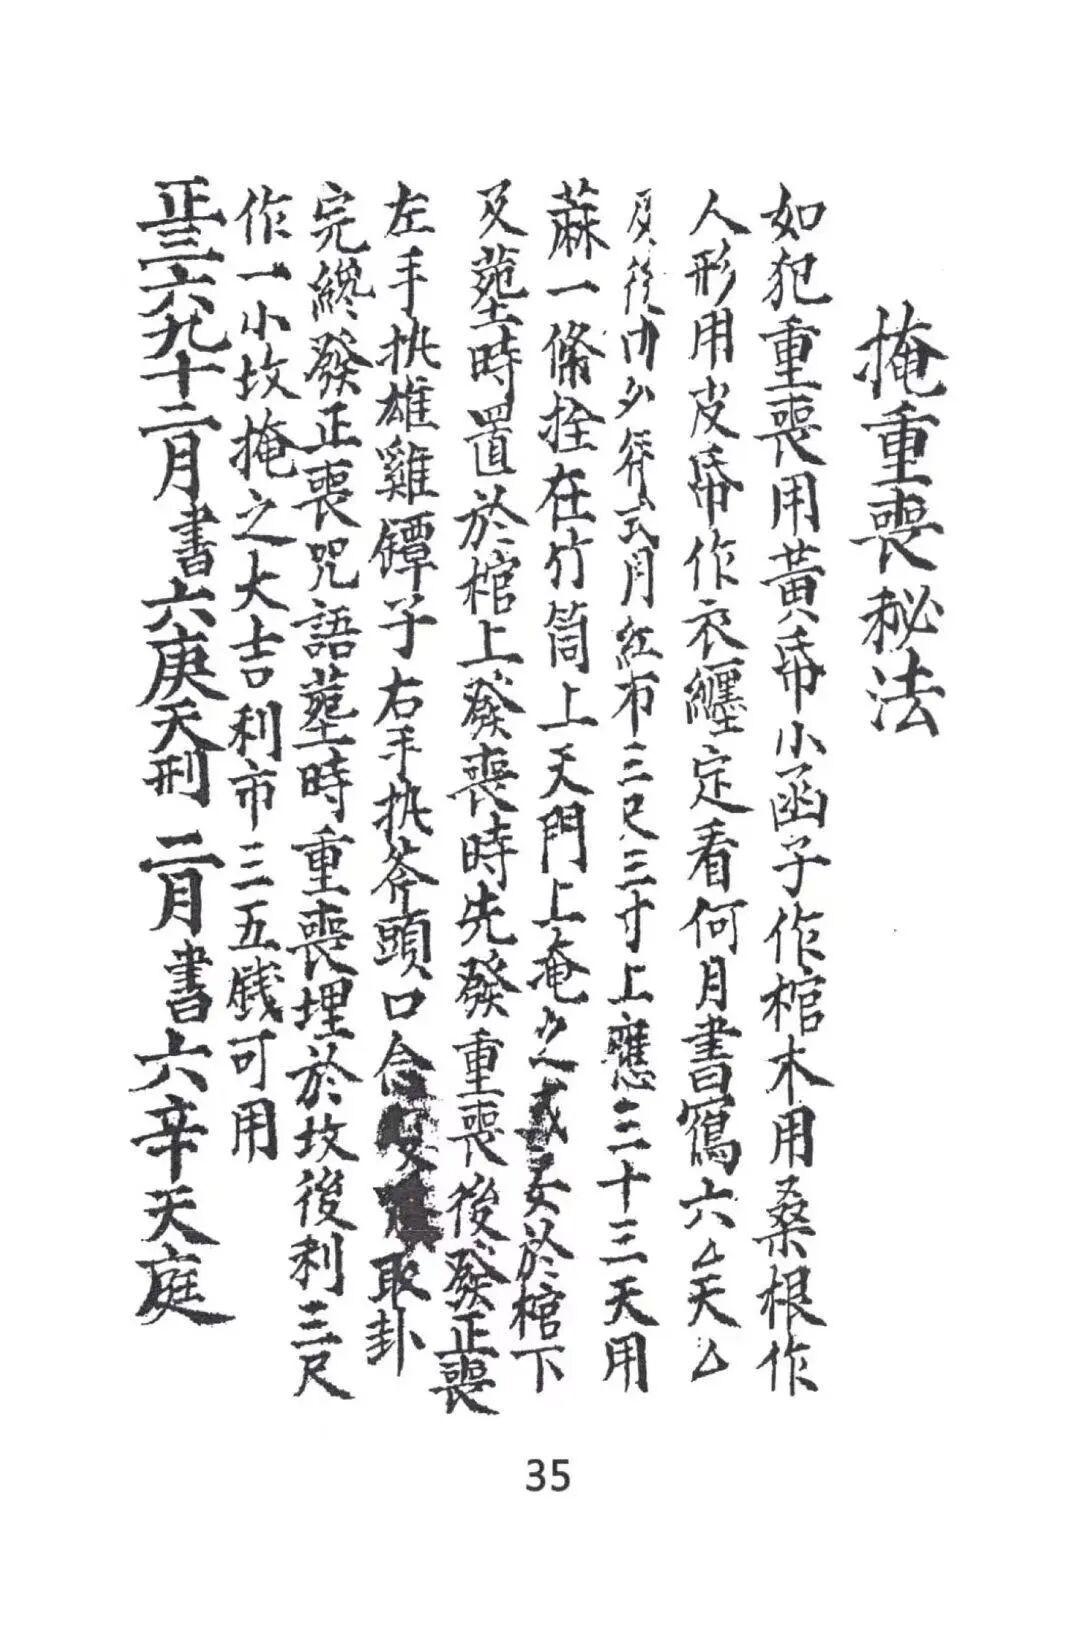 掩重喪秘法
如犯重喪用黃帋小函子作棺木用桑根作
人形用皮帋作衣纏定看何月書寫六厶天厶
月紅布三尺三寸上應三十三天用
蔴一條拴在竹筒上天門上掩之或安於棺下
及塟時置於棺上發喪時先發重喪後發正喪
左手执雄雞鐔子右手执斧頭口念取卦
完纔發正喪咒語塟時重喪埋於坟後利三尺
作一小坟掩之大吉利市三五戔可用
正三六九十二月書六庚天刑 二月書六辛天庭
35